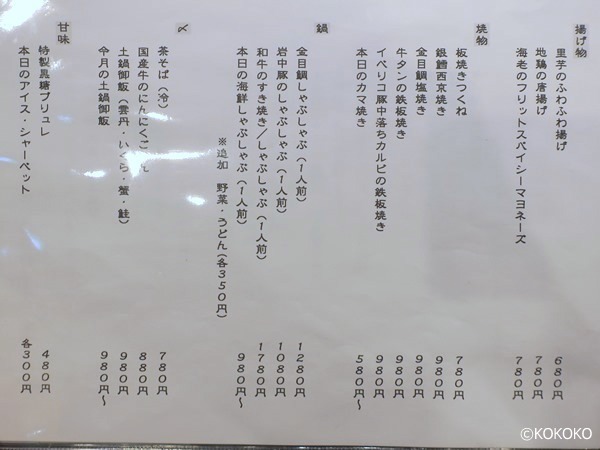 揚げ物
里芋のふわふわ揚げ 680円
地鶏の唐揚げ 780円
海老のフリットスパイシーマヨネーズ 780円
焼物
板焼きつくね 780円
銀鱈西京焼き 980円
金目鯛塩焼き 980円
牛タンの鉄板焼き 980円
イベリコ豚中落ちカルビの鉄板焼き 980円
本日のカマ焼き 580円～
鍋
金目鯛しゃぶしゃぶ(1人前) 1280円
岩中豚のしゃぶしゃぶ(1人前) 1080円
和牛のすき焼き/しゃぶしゃぶ(1人前) 1780円
本日の海鮮しゃぶしゃぶ(1人前) 980円～
※追加 野菜・うどん(各350円)
〆
茶そば(冷) 780円
国産牛のにんにくご 880円
土鍋御飯(雲丹・いくら・蟹・鮭) 980円
今月の土鍋御飯 980円～
甘味
特製黒糖ブリュレ 480円
本日のアイス・シャーベット 各300円
©KOKOKO